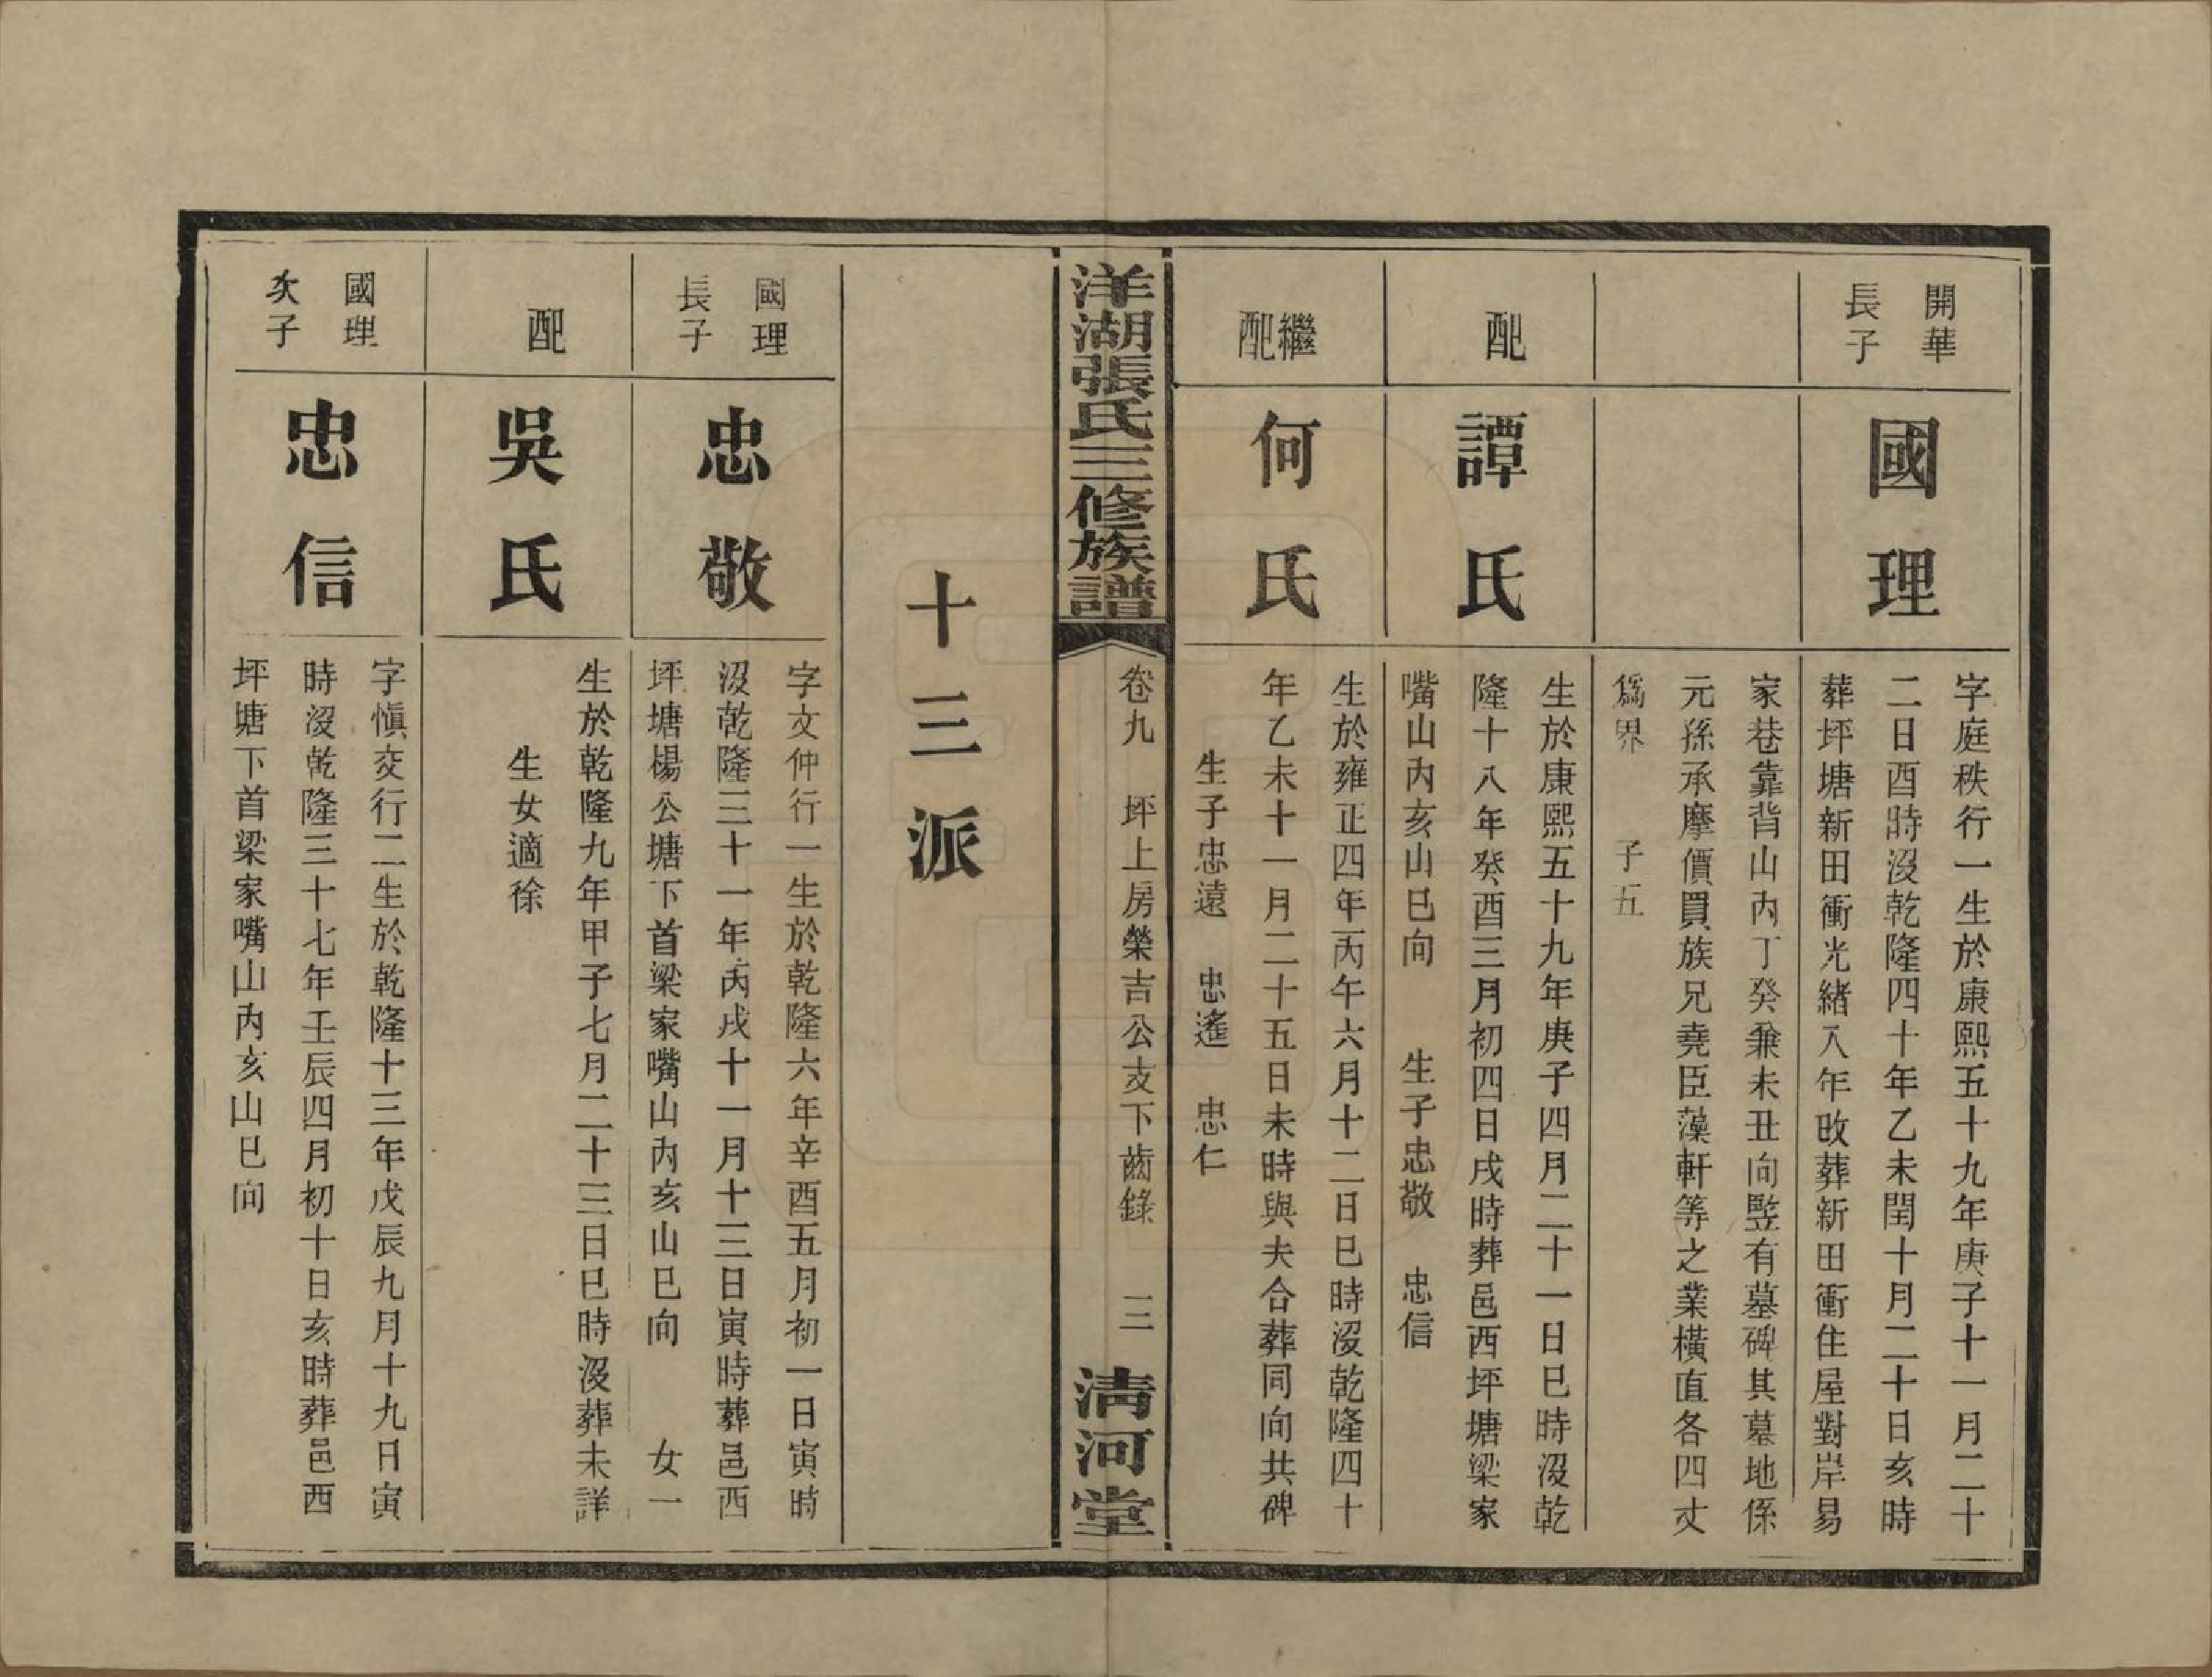 開華
長子
國理
字庭秩行一生於康熙五十九年庚子十一月二十
二日酉時沒乾隆四十年乙未閏十月二十日亥時
葬坪塘新田衝光緒入年改葬新田衝住屋對岸易
家巷靠背山內丁癸兼未丑向竪有墓碑其墓地係
元孫承摩價買族兄堯臣藻軒等之業橫直各四丈
為界　子五
配
譚氏
生於康熙五十九年庚子四月二十一日巳時沒乾
隆十八年癸酉三月初四日戌時葬邑西坪塘梁家
嘴山內亥山巳向　生子忠敬　忠信
繼配
何氏
生於雍正四年丙午六月十二日巳時沒乾隆四十
年乙未十一月二十五日未時與夫合葬同向共碑
生子忠遠　忠遙　忠仁
洋湖張氏三修族譜
卷九　坪上房榮吉公支下齒錄　三
清河堂
十三派
國理
長子
忠敬
字文仲行一生於乾隆六年辛酉五月初一日寅時
沒乾隆三十一年丙戌十一月十三日寅時葬邑西
坪塘楊公塘下首梁家嘴山內亥山巳向　女一
配
吳氏
生於乾隆九年甲子七月二十三日巳時沒葬未詳
生女適徐
國理
次子
忠信
字愼交行二生於乾隆十三年戊辰九月十九日寅
時沒乾隆三十七年壬辰四月初十日亥時葬邑西
坪塘下首梁家嘴山內亥山巳向